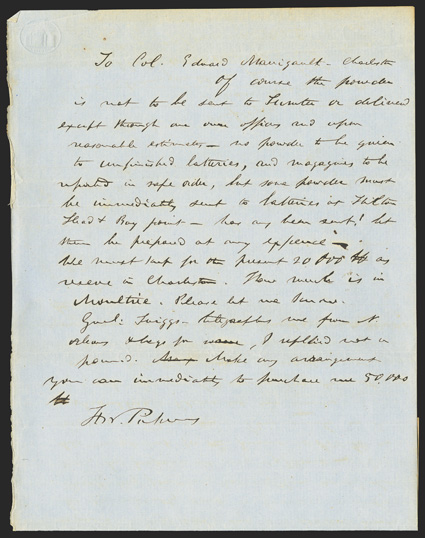 To Col. Edward Manigault - Charleston
Of course the powder
is not to be sent to Sumter or delivered
except through our own officers and upon
reasonable estimates - no powder to be given
to unfinished batteries, and magazines to be
reported in safe order, but some powder must
be immediately sent to batteries at Hilton
Head & Bay point - has any been sent? let
them be prepared at any expense -
We must keep for the present 20 000 lb as
reserve in Charleston. How much is in
Moultrie. Please let me know.
Genl: Twiggs telegraphs me from N
Orleans & begs for some, I replied not a
pound. Make any arrangement
you can immediately to purchase me 50,000
lb
F W. Pickens